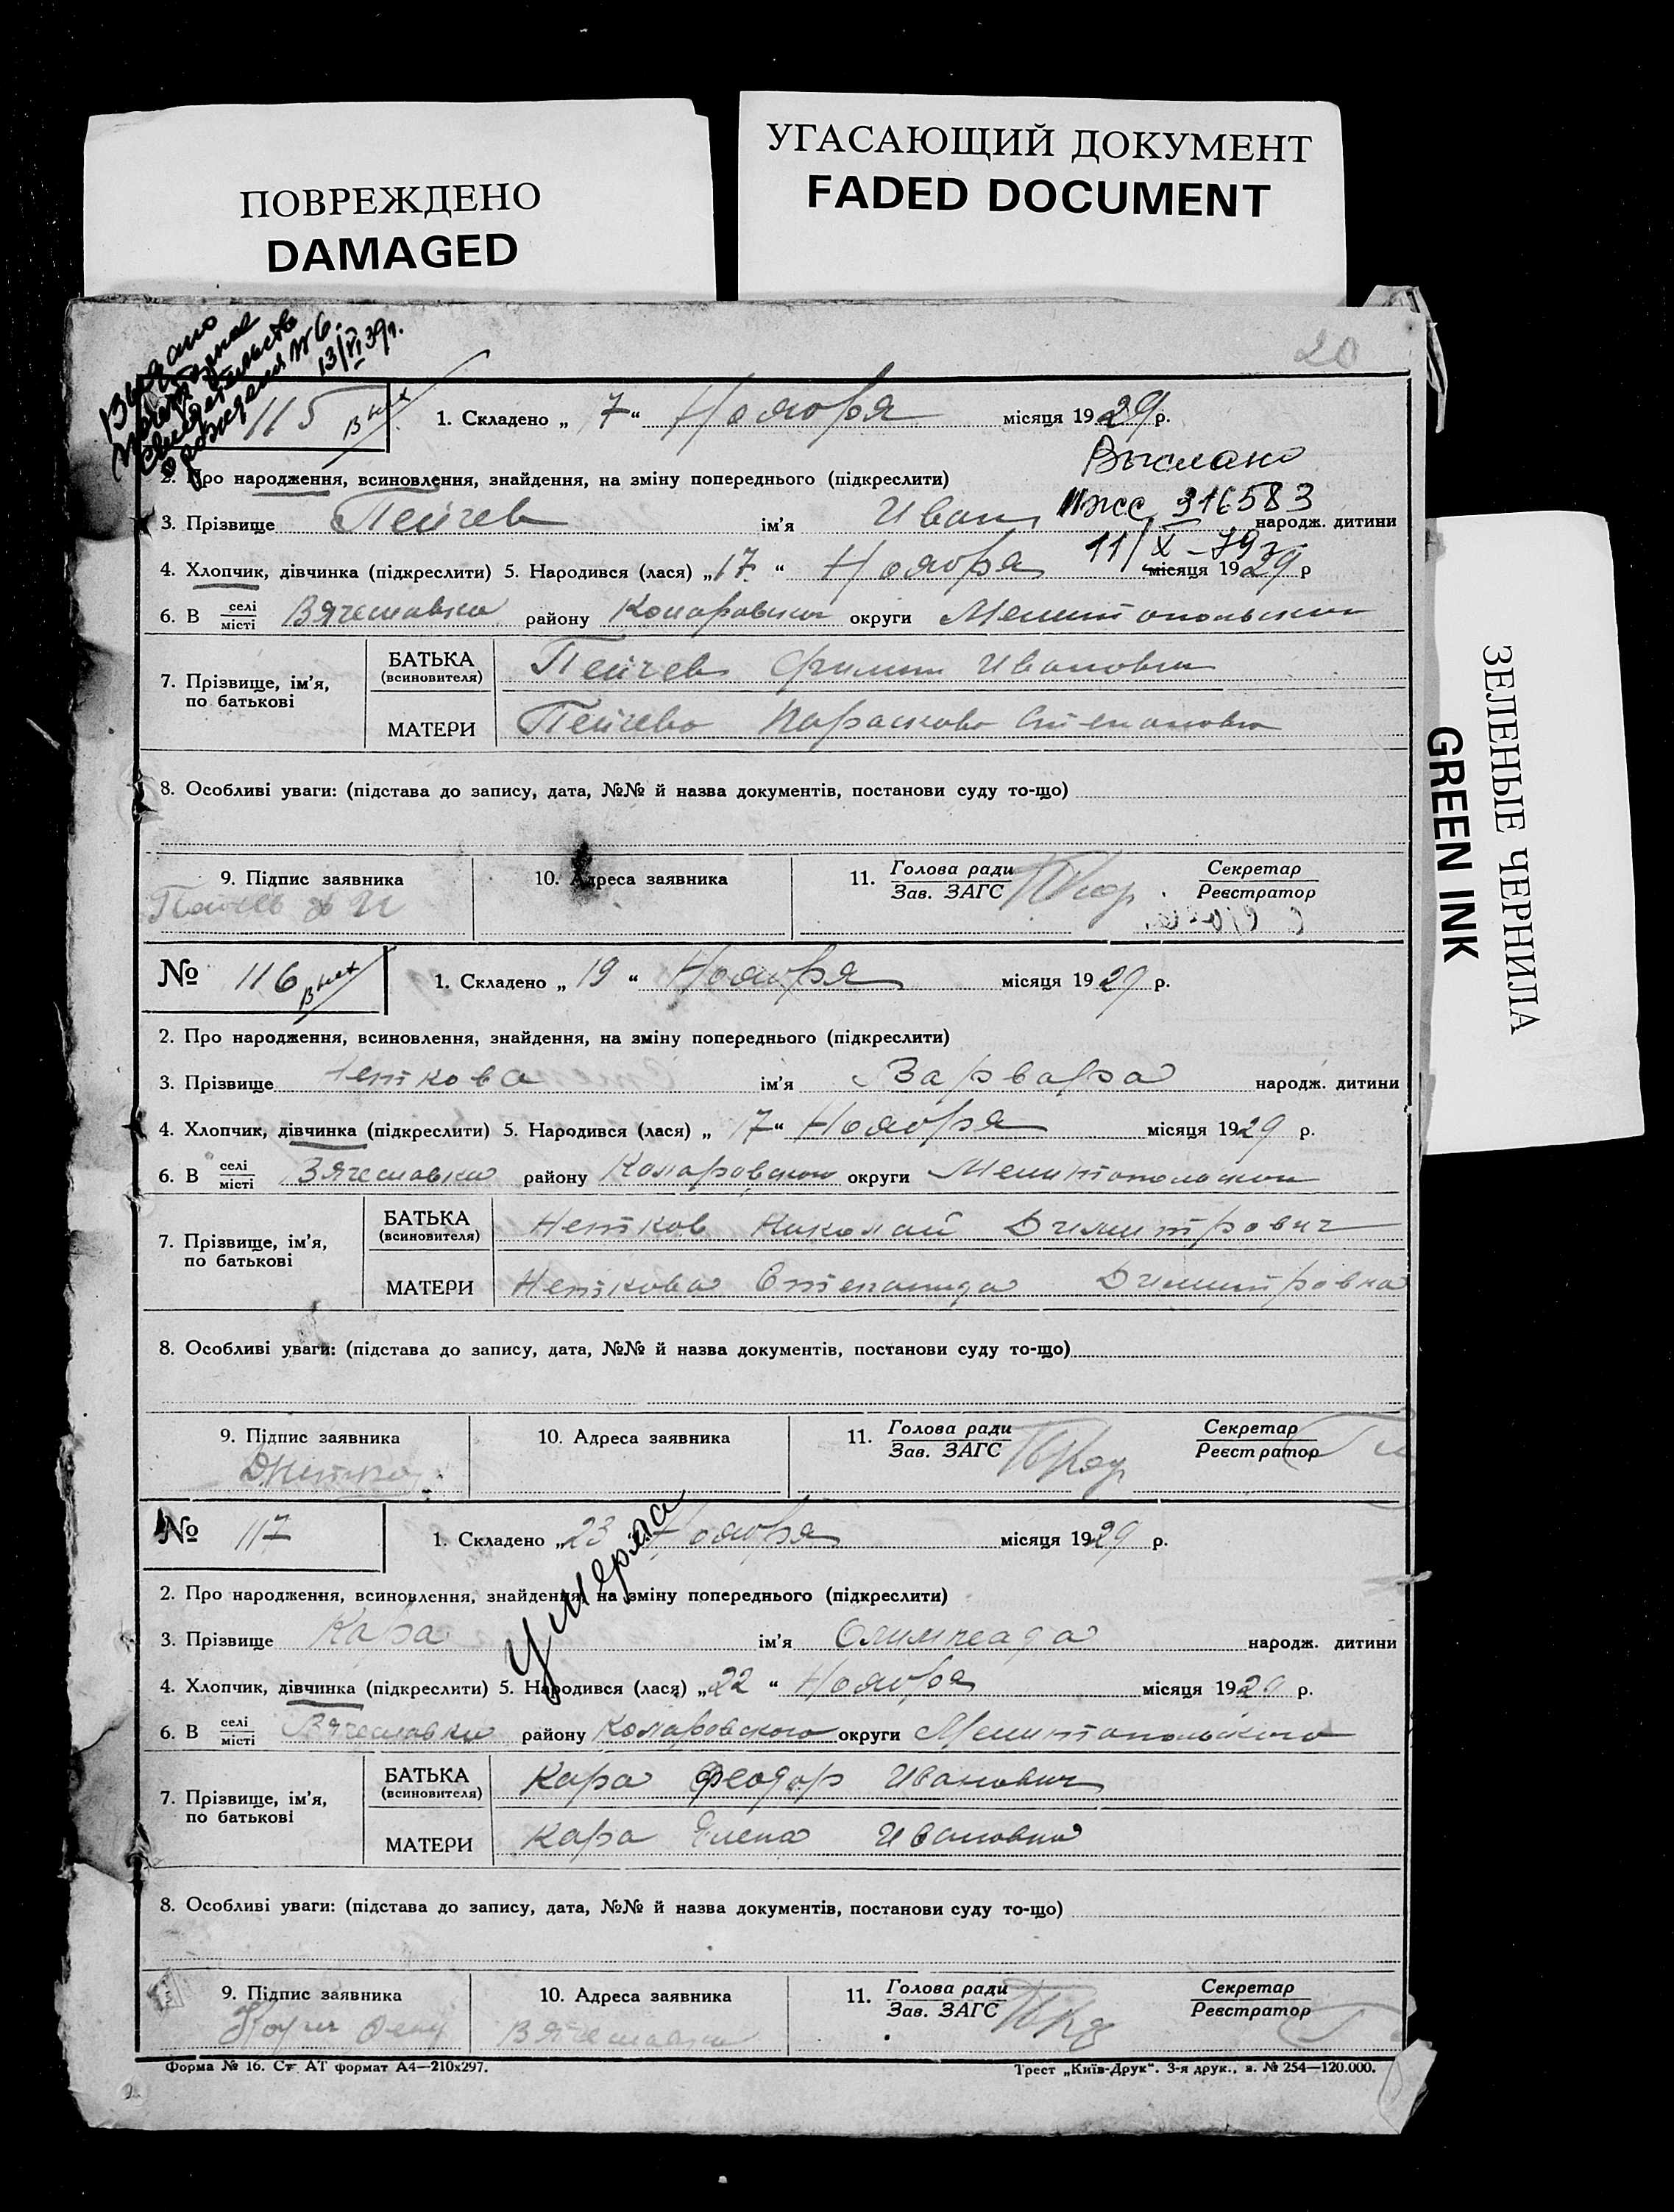 УГАСАЮЩИЙ ДОКУМЕНТ
FADED DOCUMENT
ПОВРЕЖДЕНО
DAMAGED
ЗЕЛЕНЫЕ ЧЕРНИЛА
GREEN INK
20
Выдано
повторное
свидетельство
о рождении №6.
13/VI 39г.
115
1. Складено „ 7 “ Ноября місяця 1929 р.
Выслано
2. Про народження, всиновлення, знайдення, на зміну попереднього (підкреслити)
316583
3. Прізвище Пейчев ім’я Иван народж. дитини
11/X-79
4. Хлопчик, дівчинка (підкреслити) 5. Народився (лася) „ 17 “ Ноября місяця 1929 р
6. В селі місті Вячеславка району Комаровском округи Мелитопольском
7. Прізвище, ім’я, по батькові
БАТЬКА (всиновителя) Пейчев Филипп Иванович
МАТЕРИ Пейчева Парасковья Степановна
8. Особливі уваги: (підстава до запису, дата, №№ й назва документів, постанови суду то-що)
9. Підпис заявника 10. Адреса заявника 11. Голова ради Зав. ЗАГС Секретар Реєстратор
Пейчев Ф И
№ 116 1. Складено „ 19 “ Ноября місяця 1929 р.
2. Про народження, всиновлення, знайдення, на зміну попереднього (підкреслити)
3. Прізвище Неткова ім’я Варвара народж. дитини
4. Хлопчик, дівчинка (підкреслити) 5. Народився (лася) „ 17 “ Ноября місяця 1929 р.
6. В селі місті Вячеславка району Комаровского округи Мелитопольском
7. Прізвище, ім’я, по батькові
БАТЬКА (всиновителя) Нетков Николай Димитрович
МАТЕРИ Неткова Степанида Димитровна
8. Особливі уваги: (підстава до запису, дата, №№ й назва документів, постанови суду то-що)
9. Підпис заявника 10. Адреса заявника 11. Голова ради Зав. ЗАГС Секретар Реєстратор
№ 117 1. Складено „ 23 Ноября місяця 1929 р.
Умерла
2. Про народження, всиновлення, знайдення, на зміну попереднього (підкреслити)
3. Прізвище Кара ім’я Олимпеада народж. дитини
4. Хлопчик, дівчинка (підкреслити) 5. Народився (лася) „ 22 “ Ноября місяця 1929 р.
6. В селі місті Вячеславка району Комаровского округи Мелитопольского
7. Прізвище, ім’я, по батькові
БАТЬКА (всиновителя) Кара Феодор Иванович
МАТЕРИ Кара Елена Ивановна
8. Особливі уваги: (підстава до запису, дата, №№ й назва документів, постанови суду то-що)
9. Підпис заявника 10. Адреса заявника 11. Голова ради Зав. ЗАГС Секретар Реєстратор
Вячеславка
Форма № 16. Ст АТ формат А4—210x297. Трест „Київ-Друк“. 3-я друк., з. № 254—120.000.